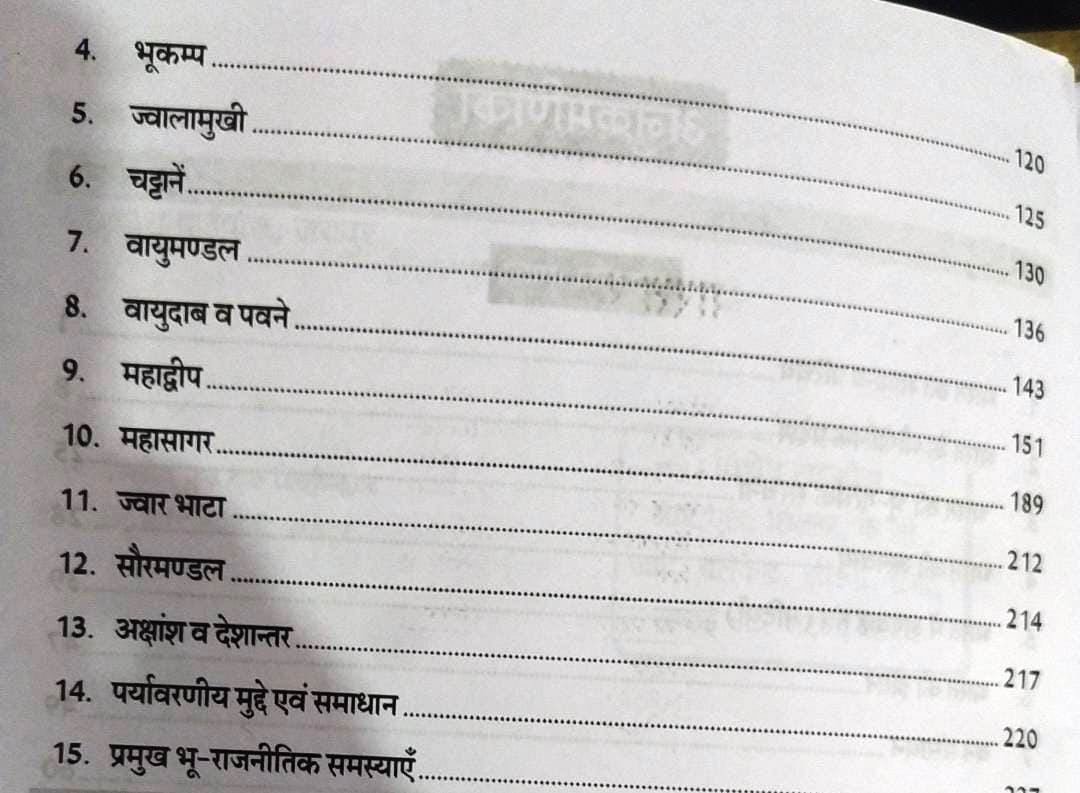 4. भूकम्प ........ 120
5. ज्वालामुखी ........ 125
6. चट्टानें ........ 130
7. वायुमण्डल ........ 136
8. वायुदाब व पवने ........ 143
9. महाद्वीप ........ 151
10. महासागर ........ 189
11. ज्वार भाटा ........ 212
12. सौरमण्डल ........ 214
13. अक्षांश व देशान्तर ........ 217
14. पर्यावरणीय मुद्दे एवं समाधान ........ 220
15. प्रमुख भू-राजनीतिक समस्याएँ ........